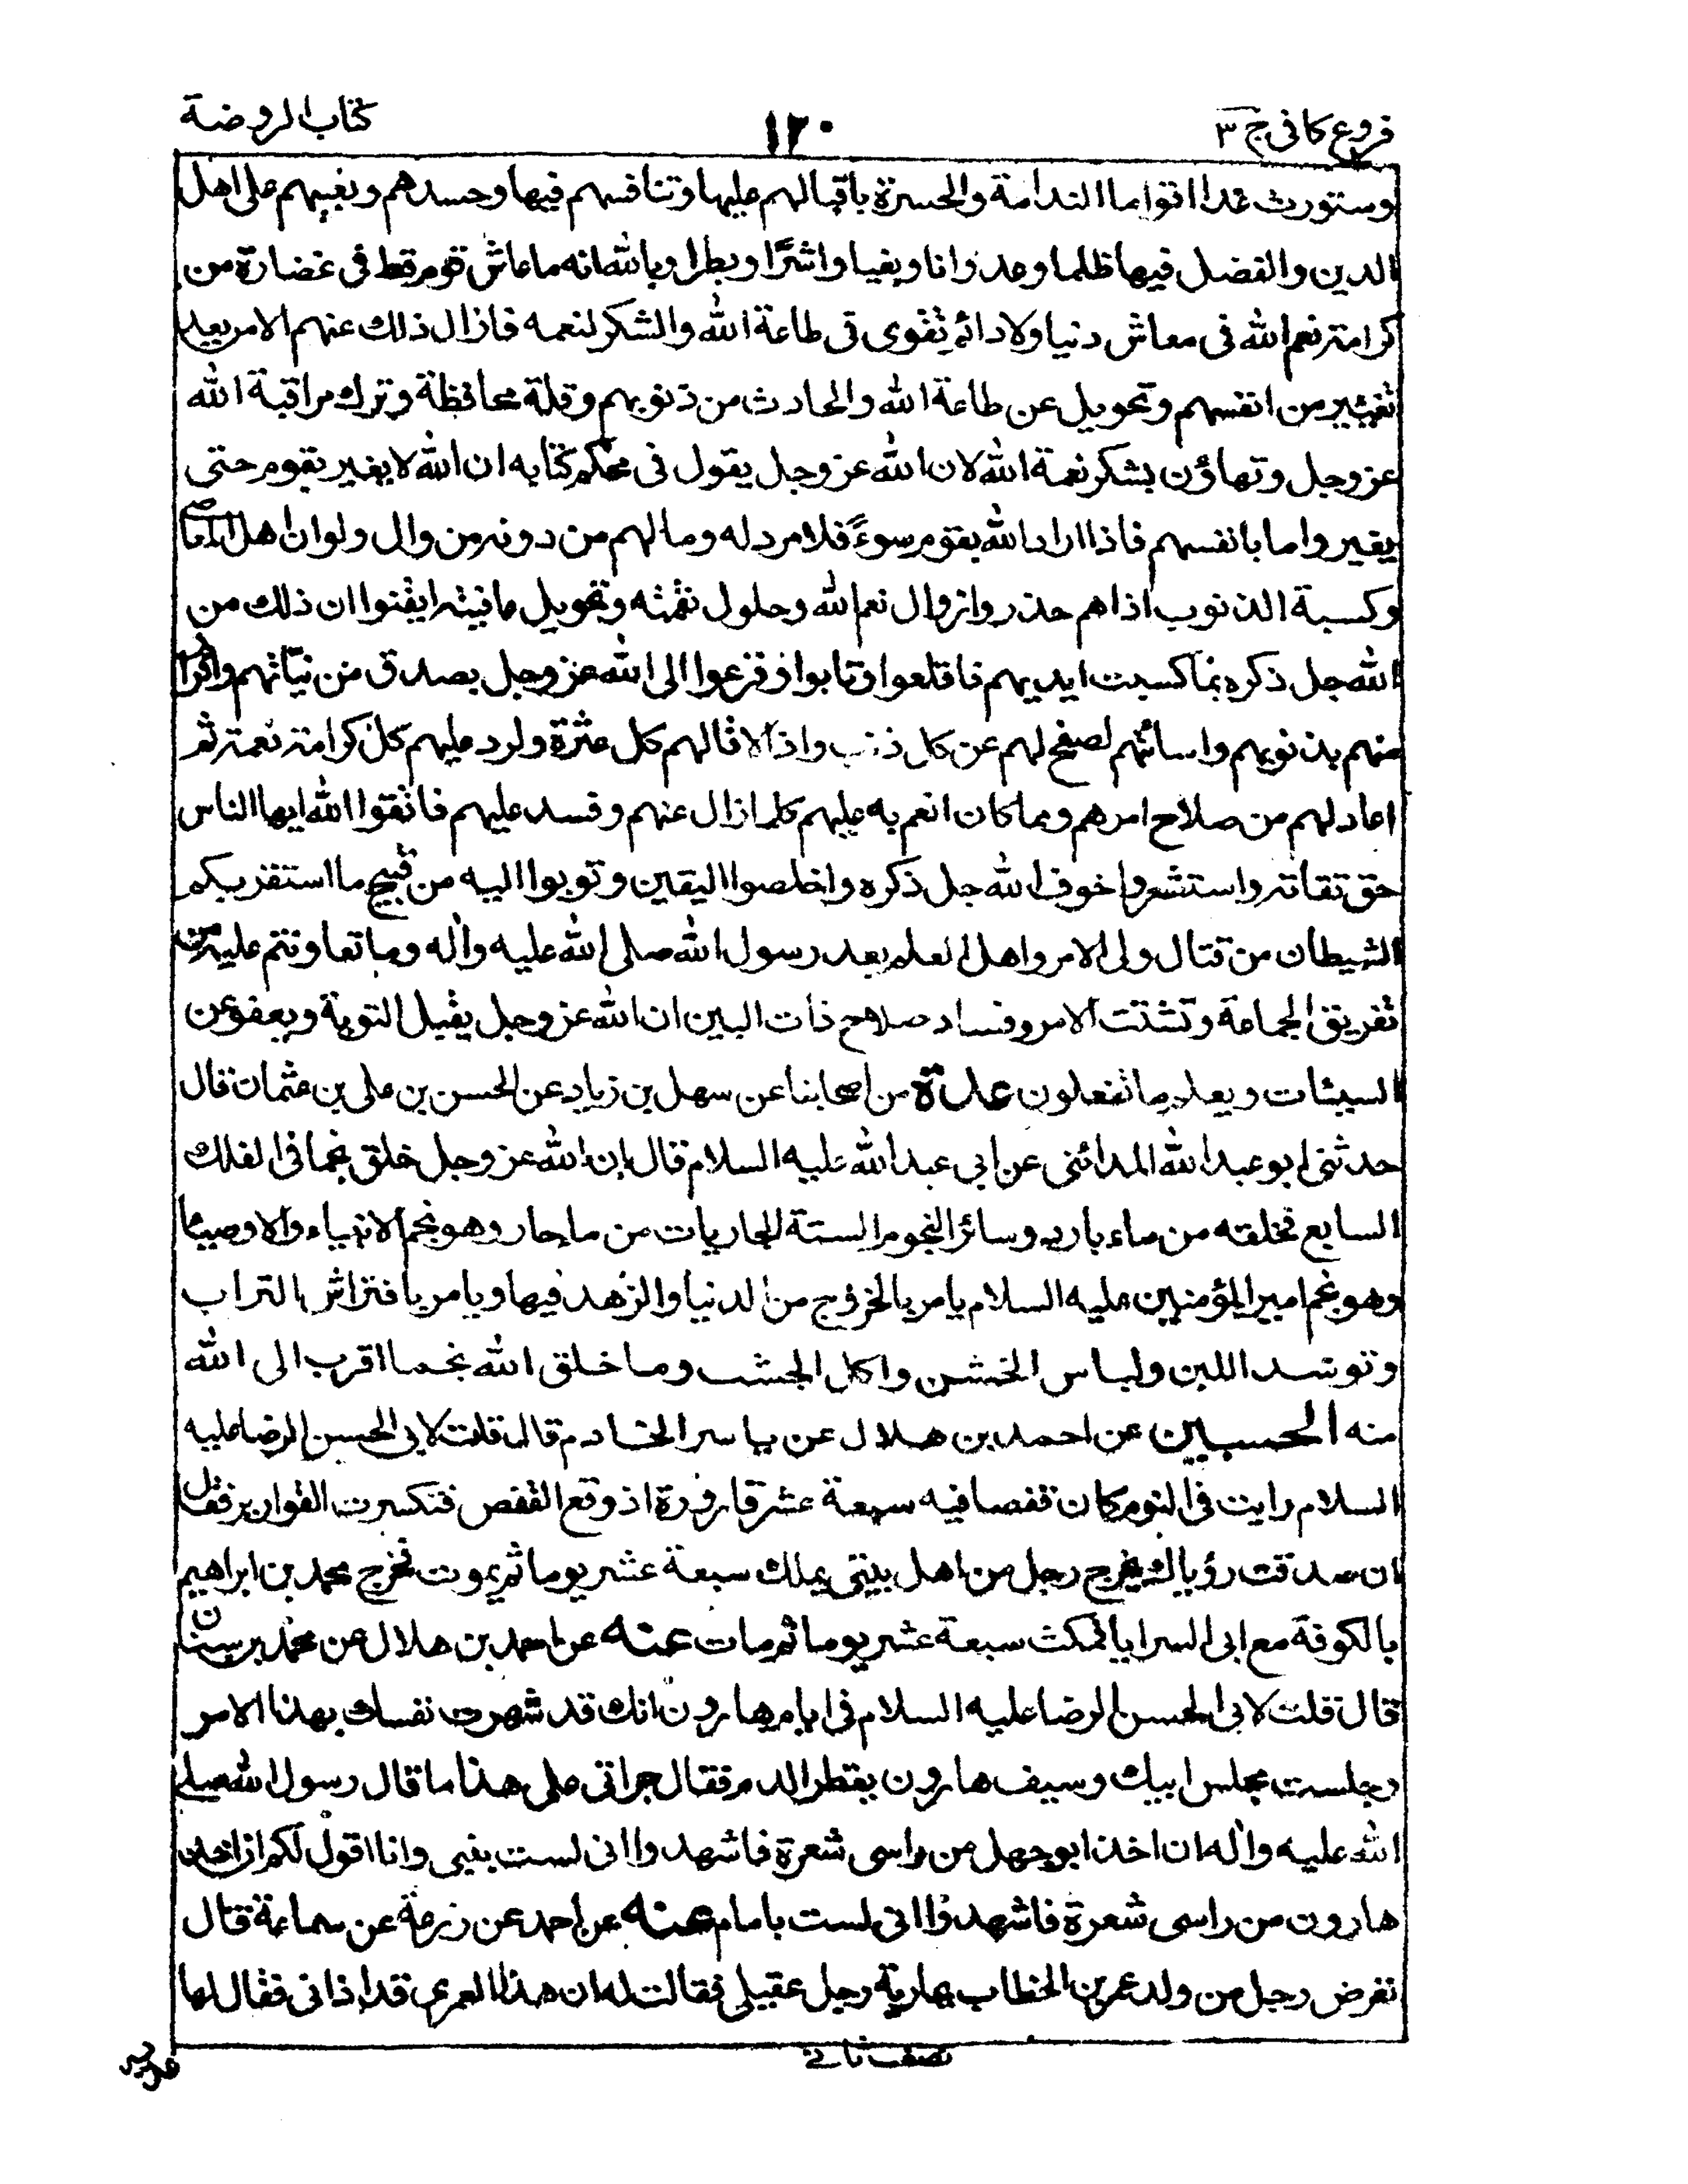 فروع كافى ج ٣
١٢٠
كتاب الروضة
وستورث غدا اقواما الندامة والحسرة باقبالهم عليها وتنافسهم فيها وحسدهم وبغيهم على اهل
الدين والفضل فيها ظلما وعدوانا وبغيا واشرًا وبطرا وبالله انه ما عاش قوم قط فى غضارة من
كرامة نعم الله فى معاش دنيا ولا دائم تقوى فى طاعة الله والشكر لنعمه فازال ذلك عنهم الا من بعد
تغيير من انفسهم وتحويل عن طاعة الله والحادث من ذنوبهم وقلة محافظة وترك مراقبة الله
عز وجل وتهاؤن بشكر نعمة الله لان الله عز وجل يقول فى محكم كتابه ان الله لا يغير بقوم حتى
يغيروا ما بانفسهم فاذا اراد الله بقوم سوءً فلا مرد له وما لهم من دونه من وال ولو ان اهل المعاصى
وكسبة الذنوب اذا هم حذروا زوال نعم الله وحلول نقمته وتحويل عافيته ايقنوا ان ذلك من
الله جل ذكره بما كسبت ايديهم فاقلعوا وتابوا وفزعوا الى الله عز وجل بصدق من نيّاتهم واقرار
منهم بذنوبهم واسائتهم لصفح لهم عن كل ذنب واذا لاقالهم كل عثرة ولرد عليهم كل كرامة نعمة ثم
اعاد لهم من صلاح امرهم ومما كان انعم به عليهم كلما زال عنهم وفسد عليهم فاتقوا الله ايها الناس
حق تقاته واستشعروا خوف الله جل ذكره واخلصوا اليقين وتوبوا اليه من قبيح ما استفزبكم
الشيطان من قتال ولى الامر واهل العلم بعد رسول الله صلى الله عليه واله وما تعاونتم عليه من
تفريق الجماعة وتشتت الامر وفساد صلاح ذات البين ان الله عز وجل يقبل التوبة ويعفو عن
السيئات ويعلم ما تفعلون عدة من اصحابنا عن سهل بن زياد عن الحسن بن على بن عثمان قال
حدثنى ابو عبد الله المدائنى عن ابى عبد الله عليه السلام قال ان الله عز وجل خلق نجما فى الفلك
السابع فخلقه من ماء بارد وسائر النجوم الستة الجاريات من ماء حار وهو نجم الانبياء والاوصياء
وهو نجم امير المؤمنين عليه السلام يامر بالخروج من الدنيا والزهد فيها ويامر بافتراش التراب
وتوسد اللبن ولباس الخشن واكل الجشب وما خلق الله نجما اقرب الى الله
منه الحسين عن احمد بن هلال عن ياسر الخادم قال قلت لابى الحسن الرضا عليه
السلام رايت فى النوم كان قفصا فيه سبعة عشر قارورة اذ وقع القفص فتكسرت القوارير فقال
ان صدقت رؤياك يخرج رجل من اهل بيتى يملك سبعة عشر يوما ثم يموت فخرج محمد بن ابراهيم
بالكوفة مع ابى السرايا فمكث سبعة عشر يوما ثم مات عنه عن احمد بن هلال عن محمد بن سنان
قال قلت لابى الحسن الرضا عليه السلام فى ايام هارون انك قد شهرت نفسك بهذا الامر
وجلست مجلس ابيك وسيف هارون يقطر الدم فقال جراتى على هذا ما قال رسول الله صلى
الله عليه واله ان اخذ ابو جهل من راسى شعرة فاشهدوا انى لست بنبى وانا اقول لكم ان اخذ
هارون من راسى شعرة فاشهدوا انى لست بامام عنه عن احمد عن زرعة عن سماعة قال
تعرض رجل من ولد عمر بن الخطاب بجارية رجل عقيلى فقالت له ان هذا العمرى قد اذانى فقال لها
نصف ثانے